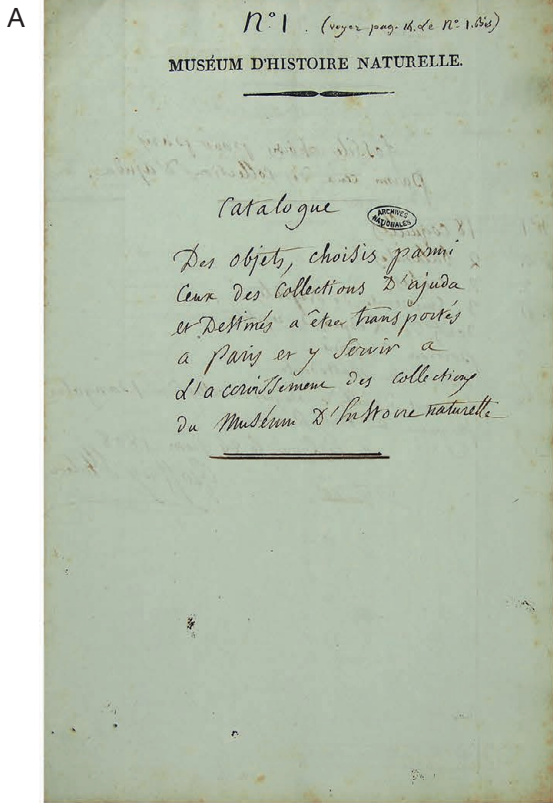 A
n.º 1. (voyez pag. 14. de nº 1. bis)
MUSÉUM D'HISTOIRE NATURELLE.
Catalogue
ARCHIVES
NATIONALES
Des objets, choisis parmi
Ceux des Collections D'ajuda
et Destinés a être transportés
a Paris et y Servir a
L'acroissement des collections
du Muséum D'histoire naturelle